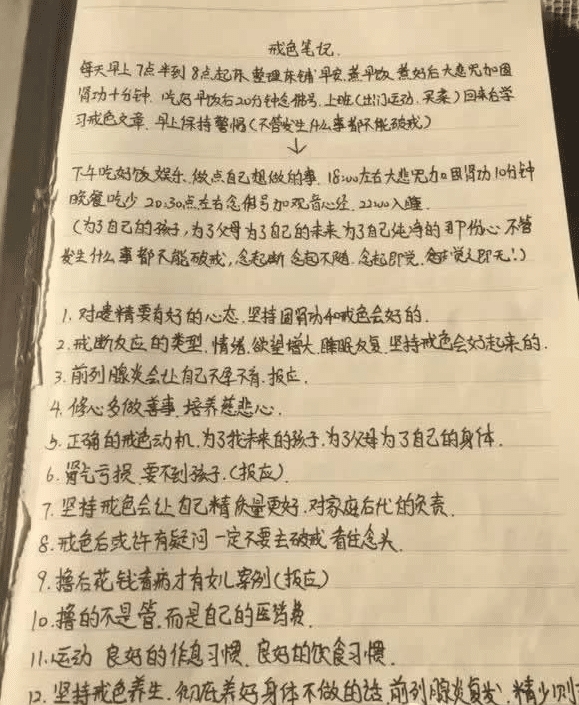 戒色笔记.
每天早上7点半到8点起床.整理床铺早安.煮早饭.煮好后大悲咒加固
肾功十分钟.吃好早饭后20分钟念佛号.上班(出门运动.买菜)回来后学
习戒色文章.早上保持警惕(不管发生什么事都不能破戒)
↓
下午吃好饭娱乐.做点自己想做的事.18:00左右大悲咒加固肾功10分钟
晚餐吃少.20:30点左右念佛号加观音心经.22:00入睡.
(为了自己的孩子,为了父母为了自己的未来为了自己纯净的那份心.不管
发生什么事都不能破戒,念起断念起不随.念起即觉.觉之即无!)
1.对遗精要有好的心态.坚持固肾功和戒色会好的.
2.戒断反应的类型.情绪.欲望增大.睡眠反复.坚持戒色会好起来的.
3.前列腺炎会让自己不孕不育.报应.
4.修心多做善事.培养慈悲心.
5.正确的戒色动机.为了我未来的孩子.为了父母为了自己的身体.
6.肾气亏损.要不到孩子.(报应).
7.坚持戒色会让自己精质量更好.对家庭后代的负责.
8.戒色后或许有疑问一定不要去破戒看住念头.
9.撸后花钱看病才有女儿案例(报应)
10.撸的不是管.而是自己的医药费.
11.运动 良好的作息习惯.良好的饮食习惯.
12.坚持戒色养生.彻底养好身体不做的话.前列腺炎复发.精少则